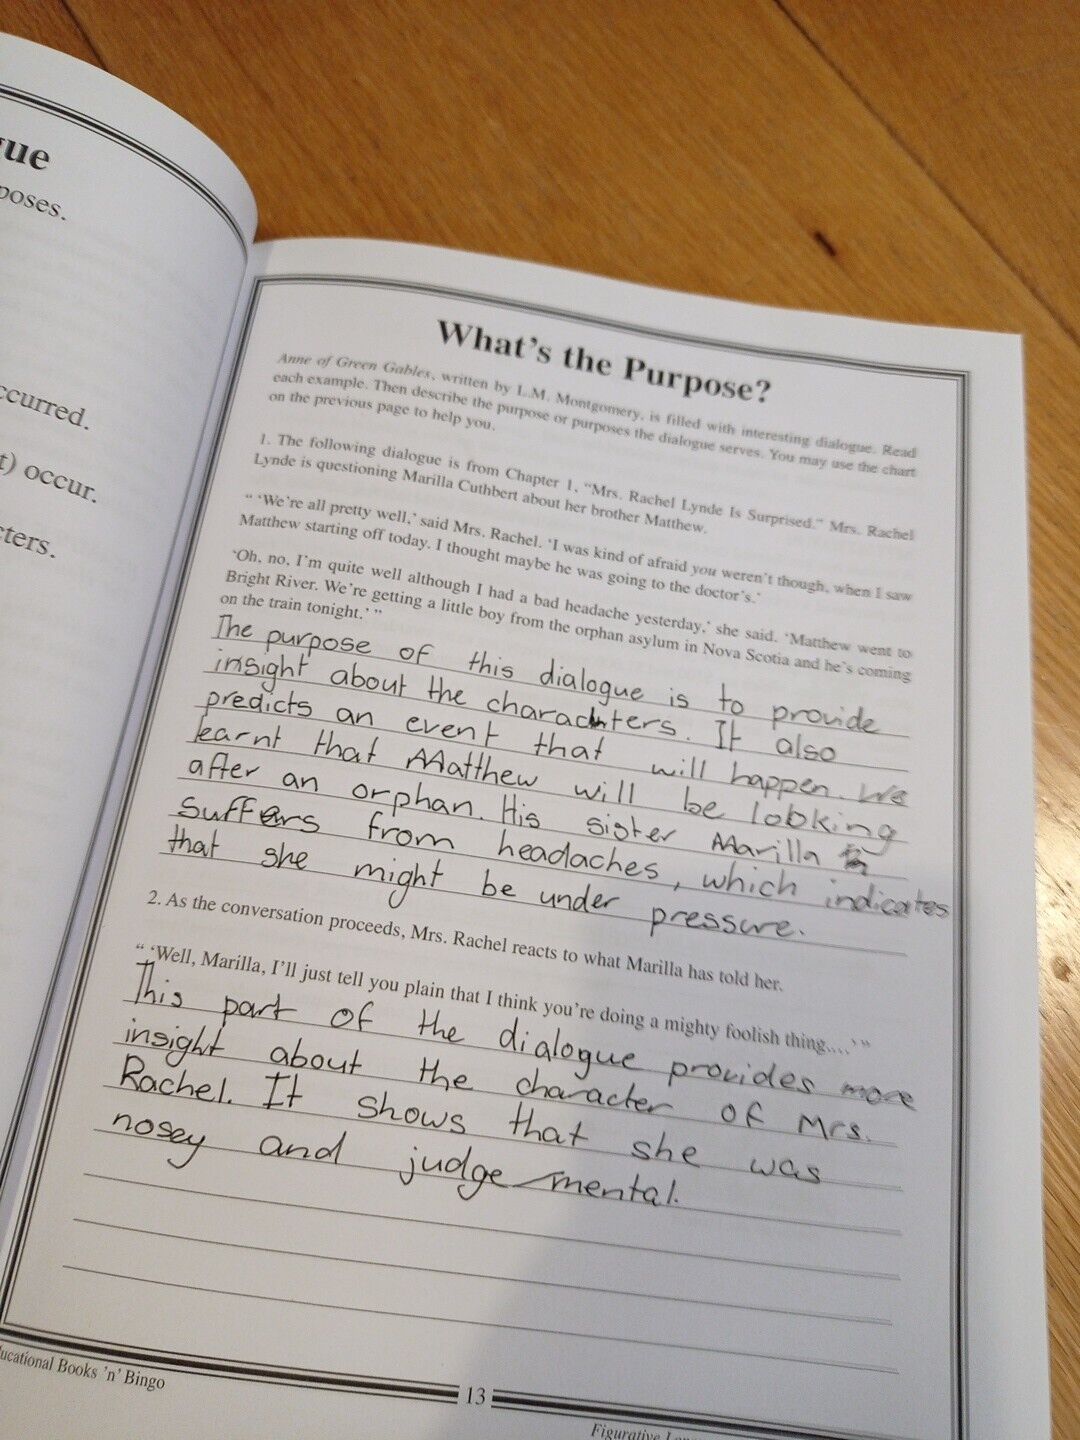 gue
poses.
ccurred.
t) occur.
cters.
ucational Books 'n' Bingo
What's the Purpose?
Anne of Green Gables, written by L.M. Montgomery, is filled with interesting dialogue. Read
each example. Then describe the purpose or purposes the dialogue serves. You may use the chart
on the previous page to help you.
1. The following dialogue is from Chapter 1, "Mrs. Rachel Lynde Is Surprised." Mrs. Rachel
Lynde is questioning Marilla Cuthbert about her brother Matthew.
" 'We're all pretty well,' said Mrs. Rachel. 'I was kind of afraid you weren't though, when I saw
Matthew starting off today. I thought maybe he was going to the doctor's.'
'Oh, no, I'm quite well although I had a bad headache yesterday,' she said. 'Matthew went to
Bright River. We're getting a little boy from the orphan asylum in Nova Scotia and he's coming
on the train tonight.' "
The purpose of this dialogue is to provide
insight about the characters. It also
predicts an event that will happen. We
learnt that Matthew will be looking
after an orphan. His sister Marilla
suffers from headaches, which indicates
that she might be under pressure.
2. As the conversation proceeds, Mrs. Rachel reacts to what Marilla has told her.
" 'Well, Marilla, I'll just tell you plain that I think you're doing a mighty foolish thing....' "
This part of the dialogue provides more
insight about the character of Mrs.
Rachel. It shows that she was
nosey and judgemental.
13
Figurative